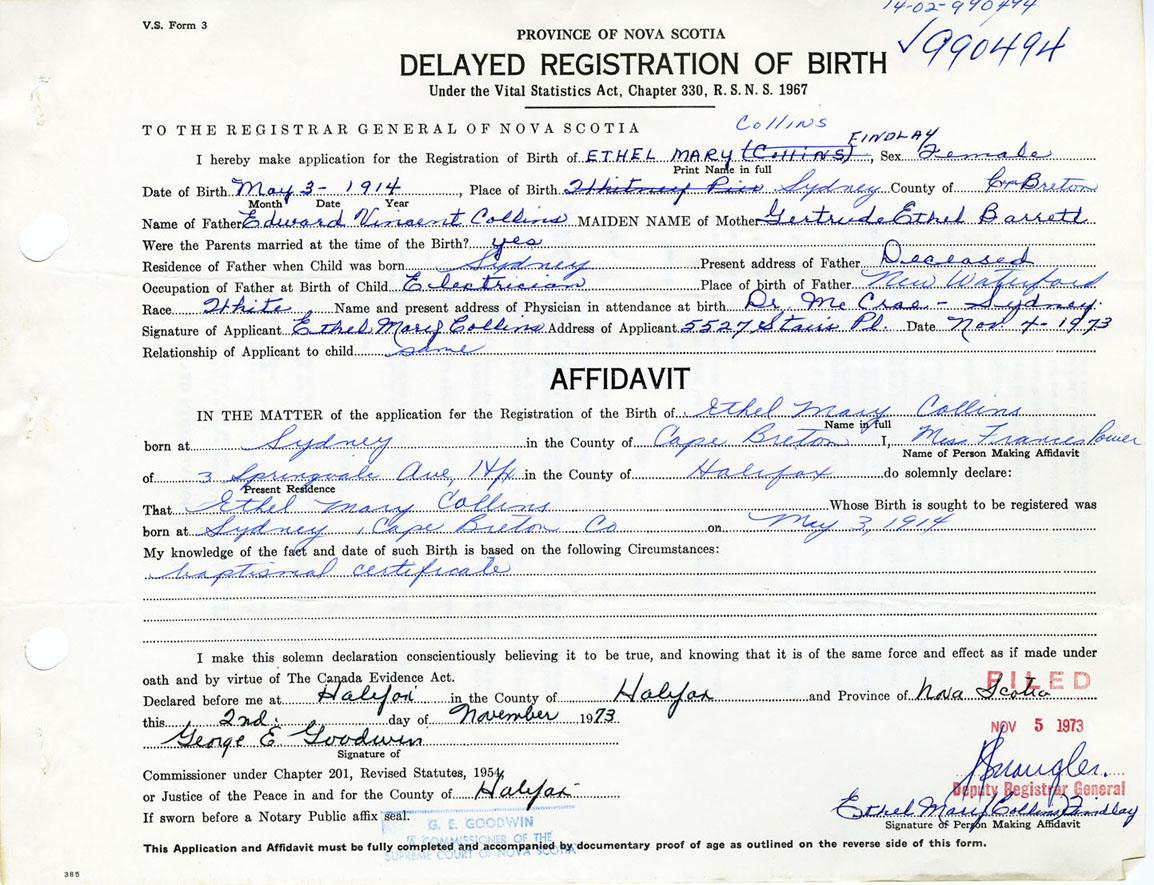 V.S. Form 3
14-02-990494
PROVINCE OF NOVA SCOTIA
✓990494
DELAYED REGISTRATION OF BIRTH
Under the Vital Statistics Act, Chapter 330, R.S.N.S. 1967
Collins
TO THE REGISTRAR GENERAL OF NOVA SCOTIA
FINDLAY
I hereby make application for the Registration of Birth of ETHEL MARY (Collins), Sex Female
Print Name in full
Date of Birth May 3 - 1914, Place of Birth Whitney Pier Sydney County of C. Breton
Month Date Year
Name of Father Edward Vincent Collins MAIDEN NAME of Mother Gertrude Ethel Barrett
Were the Parents married at the time of the Birth? yes
Residence of Father when Child was born Sydney Present address of Father Deceased
Occupation of Father at Birth of Child Electrician Place of birth of Father New Waterford
Race White, Name and present address of Physician in attendance at birth Dr. McCrae - Sydney.
Signature of Applicant Ethel Mary Collins Address of Applicant 5527 Stairs Pl. Date Nov 4 - 1973
Relationship of Applicant to child same
AFFIDAVIT
IN THE MATTER of the application for the Registration of the Birth of Ethel Mary Collins
Name in full
born at Sydney in the County of Cape Breton I, Miss Frances Power
Name of Person Making Affidavit
of 3 Springvale Ave, Hfx in the County of Halifax do solemnly declare:
Present Residence
That Ethel Mary Collins Whose Birth is sought to be registered was
born at Sydney, Cape Breton Co on May 3, 1914
My knowledge of the fact and date of such Birth is based on the following Circumstances:
baptismal certificate
I make this solemn declaration conscientiously believing it to be true, and knowing that it is of the same force and effect as if made under
oath and by virtue of The Canada Evidence Act.
FILED
Declared before me at Halifax in the County of Halifax and Province of Nova Scotia
this 2nd. day of November 1973
NOV 5 1973
George E Goodwin
Signature of
Commissioner under Chapter 201, Revised Statutes, 1954,
or Justice of the Peace in and for the County of Halifax
Deputy Registrar General
Ethel Mary (Collins) Findlay
If sworn before a Notary Public affix seal.
Signature of Person Making Affidavit
G. E. GOODWIN
A COMMISSIONER OF THE
SUPREME COURT OF NOVA SCOTIA
This Application and Affidavit must be fully completed and accompanied by documentary proof of age as outlined on the reverse side of this form.
385